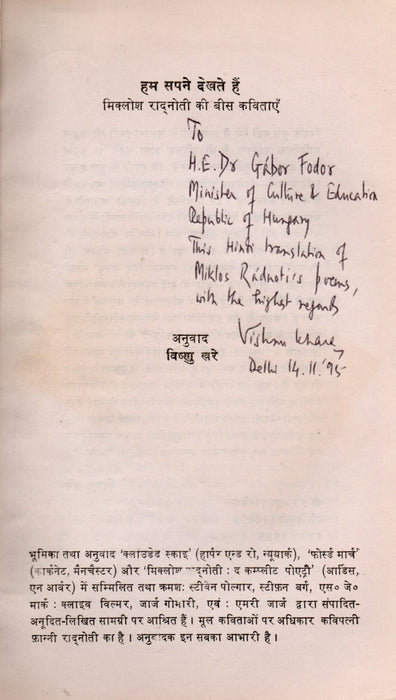 हम सपने देखते हैं
मिक्लोश राद्नोती की बीस कविताएँ
To
H.E. Dr Gábor Fodor
Minister of Culture & Education
Republic of Hungary
This Hindi translation of
Miklos Radnoti's poems,
with the highest regards
अनुवाद
विष्णु खरे
Vishnu Khare
Delhi 14.11.'95
भूमिका तथा अनुवाद 'क्लाउडेड स्काइ' (हार्पर एन्ड रो, न्यूयार्क), 'फोर्स्ड मार्च'
(कार्कनेट, मैनचैस्टर) और 'मिक्लोश राद्नोती : द कम्प्लीट पोएट्री' (आर्डिस,
एन आर्बर) में सम्मिलित तथा क्रमशः स्टीवेन पोल्गार, स्टीफ़न बर्ग, एस० जे०
मार्क : क्लाइव विल्मर, जार्ज गोमोरी, एवं : एमरी जार्ज द्वारा संपादित-
अनूदित-लिखित सामग्री पर आश्रित हैं। मूल कविताओं पर अधिकार कविपत्नी
फ़ान्नी राद्नोती का है। अनुवादक इन सबका आभारी है।